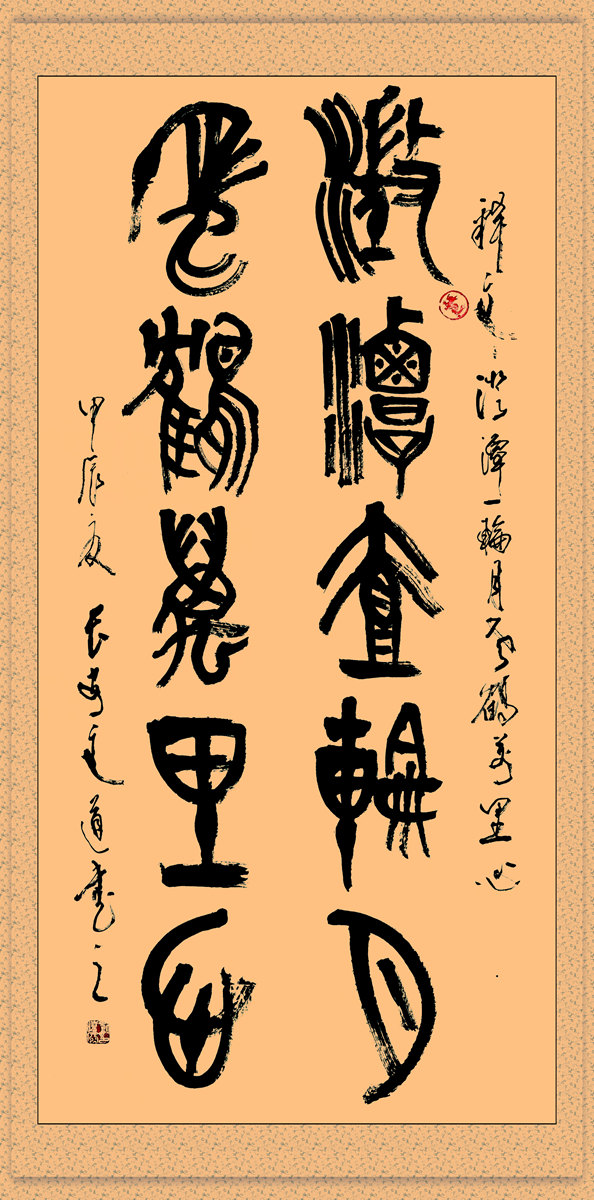 釋文：澄潭一輪月風鶴萬里心
澂潭壹輪月
風鶴萬里心
甲辰夏長安王道書之